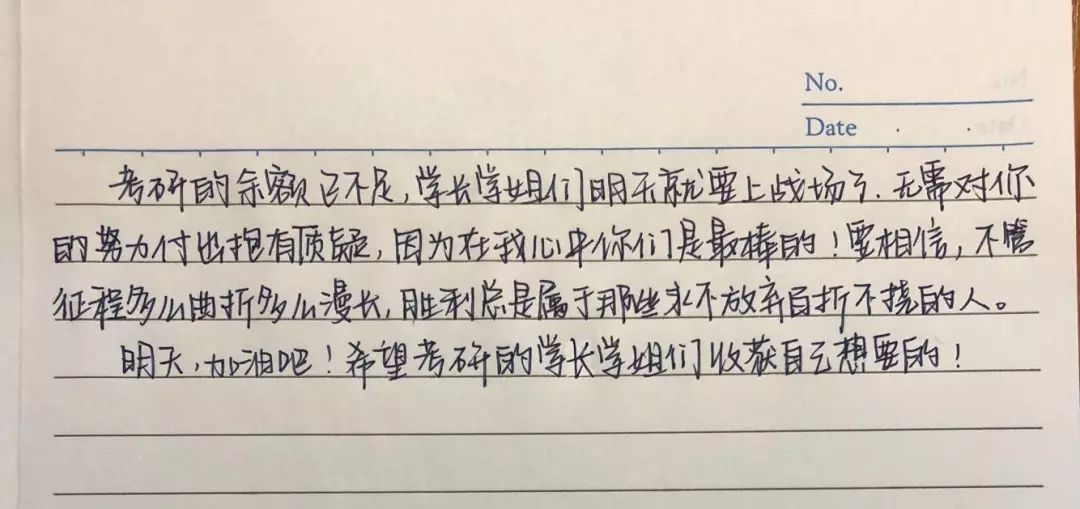 No.
Date
考研的余额已不足，学长学姐们明天就要上战场了.无需对你
的努力付出抱有质疑，因为在我心中你们是最棒的！要相信，不管
征程多么曲折多么漫长，胜利总是属于那些永不放弃百折不挠的人。
明天，加油吧！希望考研的学长学姐们收获自己想要的！